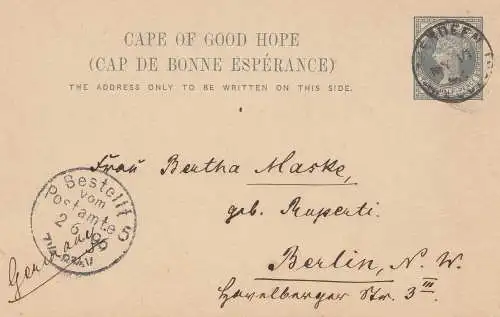 CAPE OF GOOD HOPE
(CAP DE BONNE ESPÉRANCE)
THE ADDRESS ONLY TO BE WRITTEN ON THIS SIDE.
Frau Bertha Maske,
geb. Ruperti.
Berlin, N. W.
Havelberger Str. 3 III
Germany
Bestellt
vom
Postamte 5
2 6
95